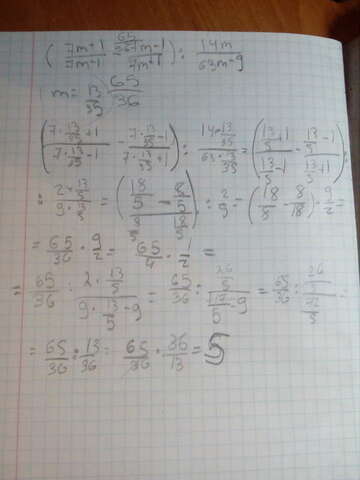 ( 7m+1/7m-1 - 7m-1/7m+1 ) : 14m/63m-9
m = 13/35 65/36
( (7·13/35+1)/(7·13/35-1) - (7·13/35-1)/(7·13/35+1) ) : (14·13/35)/(63·13/35) = ( (13/5+1)/(13/5-1) - (13/5-1)/(13/5+1) ) :
: (2·13/5)/(9·13/5) = ( (18/5)/(8/5) - (8/5)/(18/5) ) : 2/9 = ( 18/8 - 8/18 ) · 9/2 =
= 65/36 · 9/2 = 65/4 · 1/2 =
= 65/36 : (2·13/5)/(9·13/5-9) = 65/36 : (26/5)/(117/5-9) = 65/36 : (26/5)/(72/5) =
= 65/36 : 13/36 = 65/36 · 36/13 = 5